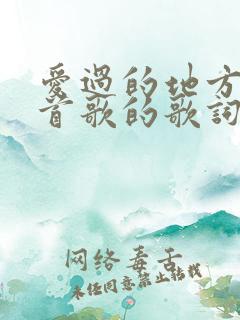 爱过的地方
首歌的歌词
网络毒舌
未经同意禁止转载